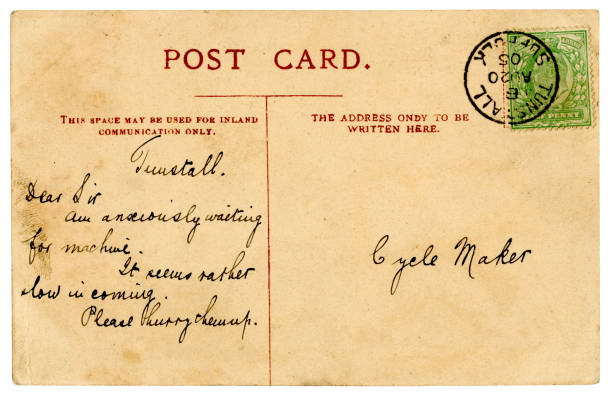 POST CARD.
THIS SPACE MAY BE USED FOR INLAND
COMMUNICATION ONLY.
THE ADDRESS ONDY TO BE
WRITTEN HERE.
TUNSTALL
B
AU 20
05
SUFFOLK
PENNY
Tunstall.
Dear Sir
am anxiously waiting
for machine.
It seems rather
slow in coming.
Please hurry them up.
Cycle Maker